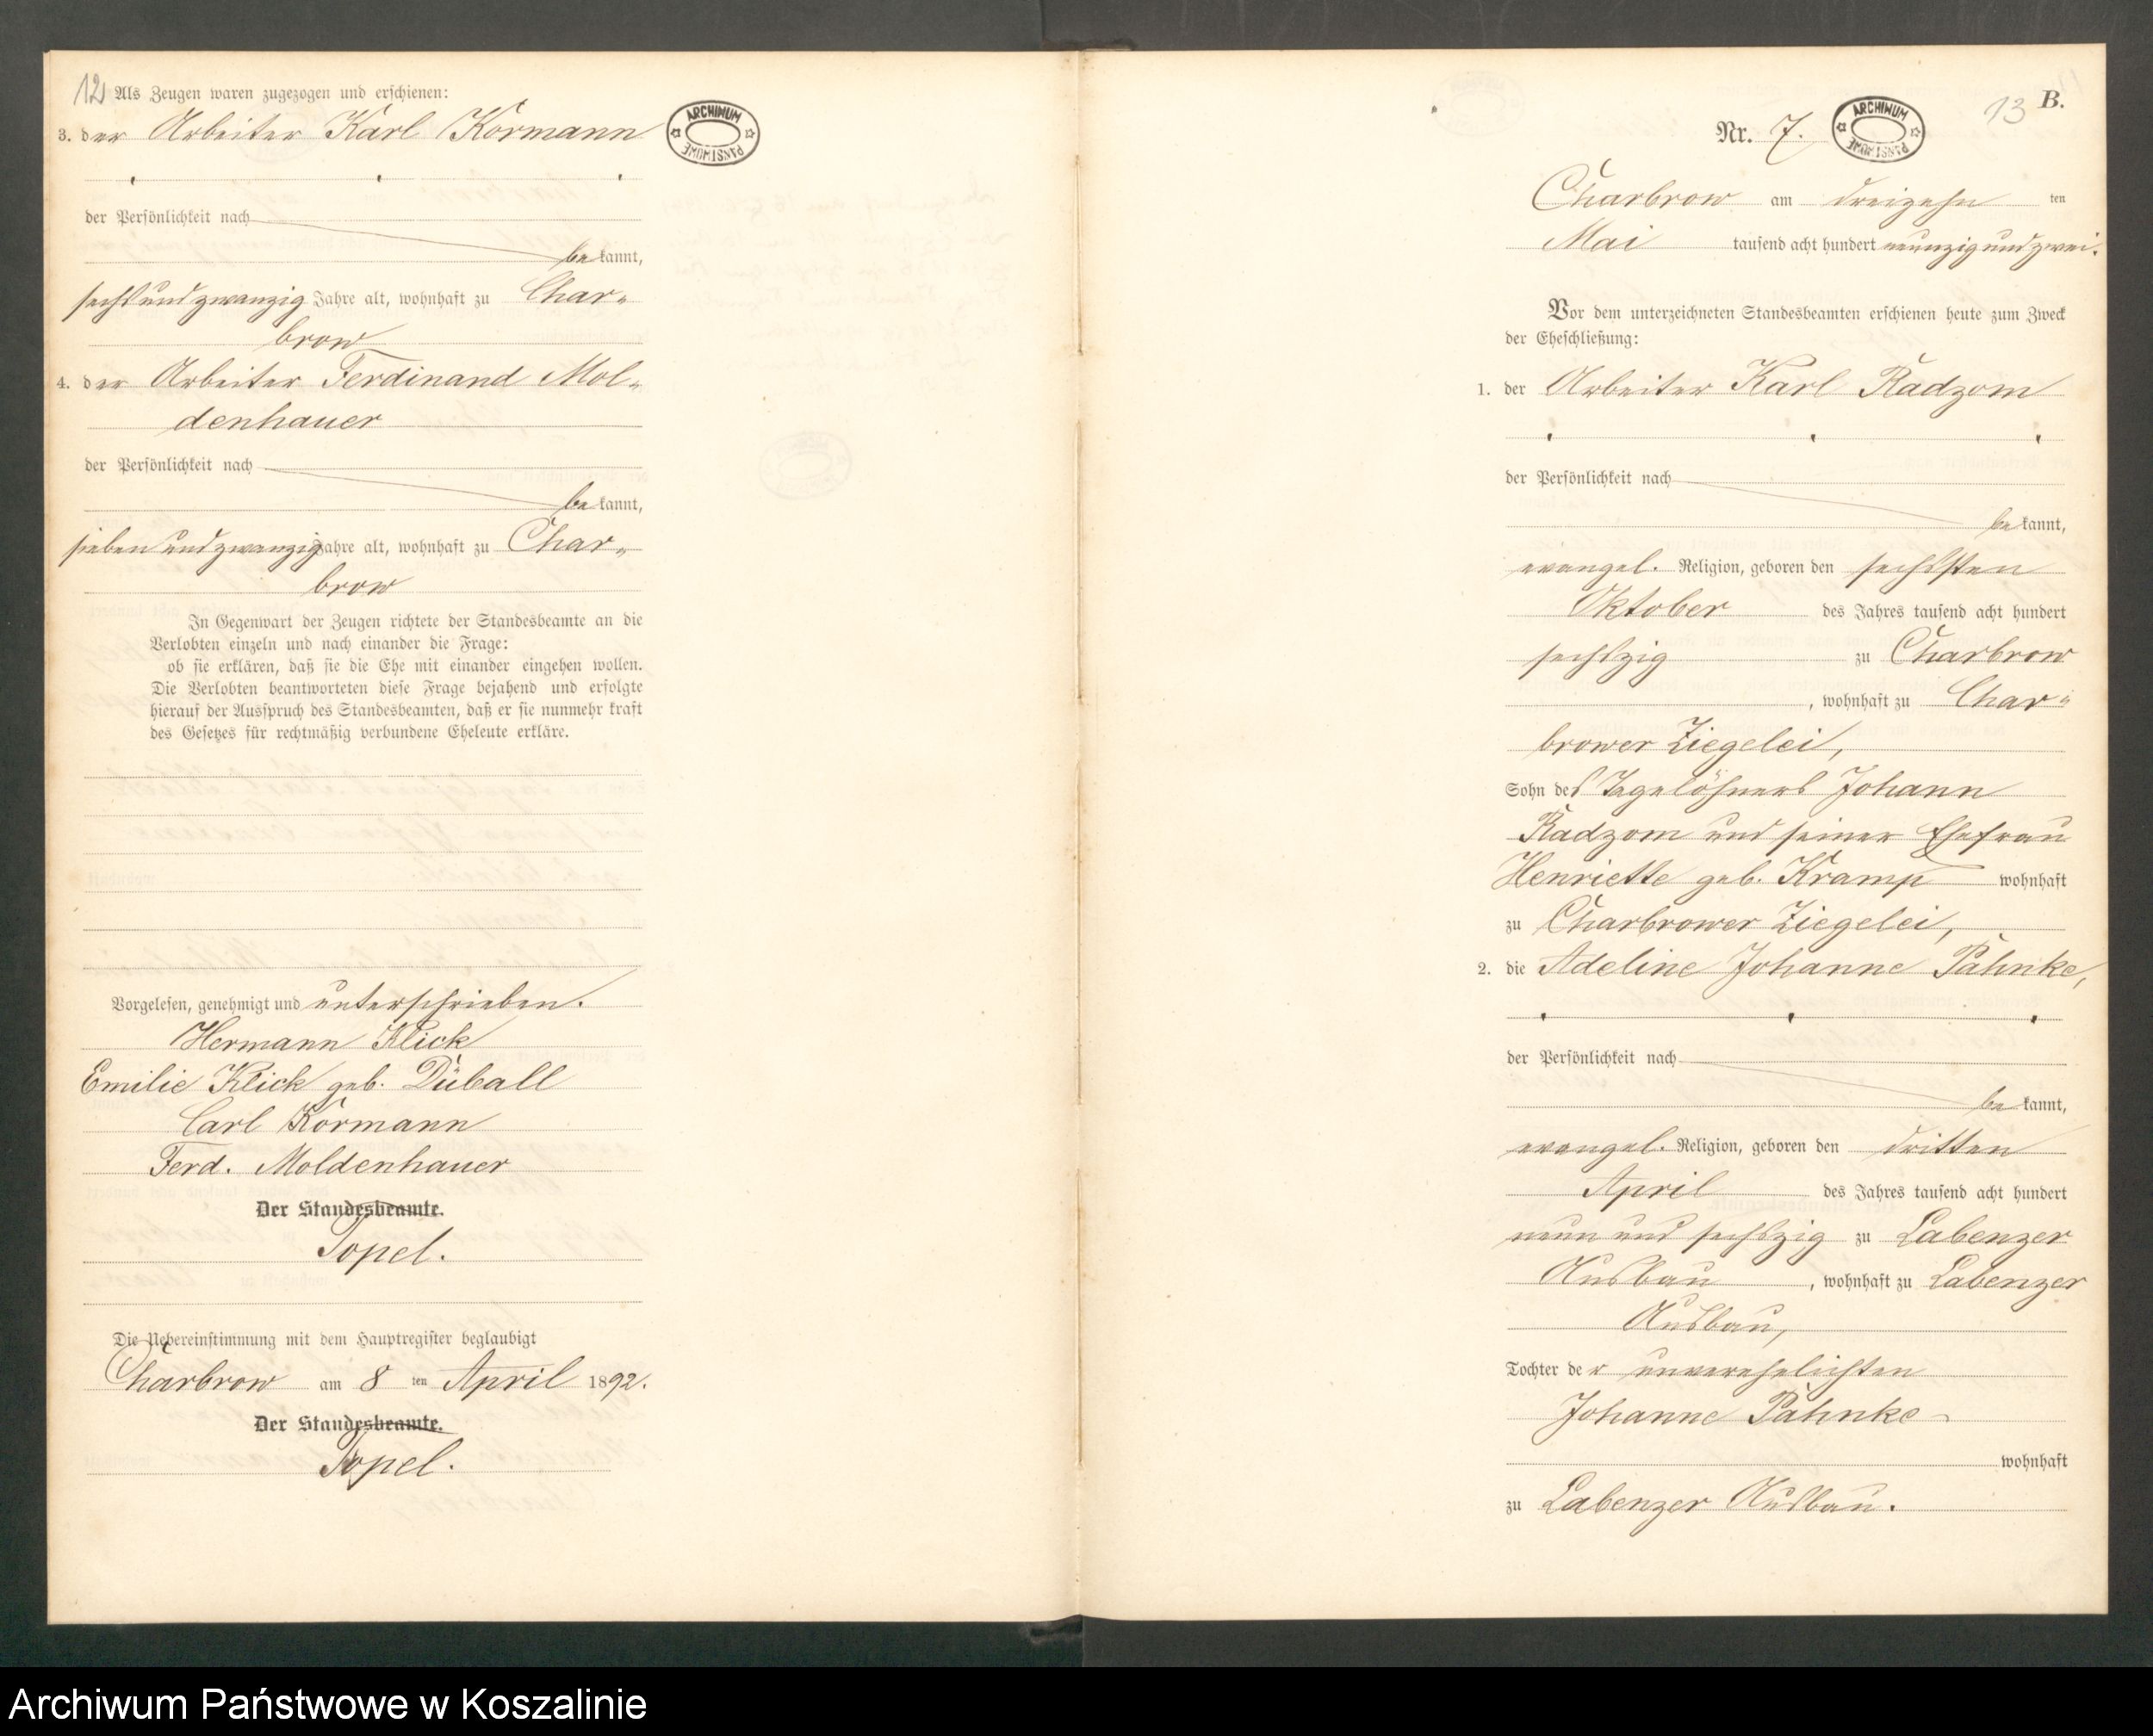 12 Als Zeugen waren zugezogen und erschienen:
3. der Arbeiter Karl Kormann
der Persönlichkeit nach
bekannt,
sechsundzwanzig Jahre alt, wohnhaft zu Char-
brow
4. der Arbeiter Ferdinand Mol-
denhauer
der Persönlichkeit nach
bekannt,
siebenundzwanzig Jahre alt, wohnhaft zu Char-
brow
In Gegenwart der Zeugen richtete der Standesbeamte an die
Verlobten einzeln und nach einander die Frage:
ob sie erklären, daß sie die Ehe mit einander eingehen wollen.
Die Verlobten beantworteten diese Frage bejahend und erfolgte
hierauf der Ausspruch des Standesbeamten, daß er sie nunmehr kraft
des Gesetzes für rechtmäßig verbundene Eheleute erkläre.
Vorgelesen, genehmigt und unterschrieben.
Hermann Klick
Emilie Klick geb. Düball
Carl Kormann
Ferd. Moldenhauer
Der Standesbeamte.
Topel.
Die Uebereinstimmung mit dem Hauptregister beglaubigt
Charbrow am 8 ten April 1892.
Der Standesbeamte.
Topel.
ARCHIWUM PAŃSTWOWE
13 B.
Nr. 7.
ARCHIWUM PAŃSTWOWE
Charbrow am dreizehn ten
Mai tausend acht hundert neunzig und zwei.
Vor dem unterzeichneten Standesbeamten erschienen heute zum Zweck
der Eheschließung:
1. der Arbeiter Karl Radzom
der Persönlichkeit nach
bekannt,
evangel. Religion, geboren den sechsten
Oktober des Jahres tausend acht hundert
sechszig zu Charbrow
, wohnhaft zu Char-
brower Ziegelei,
Sohn des Tagelöhners Johann
Radzom und seiner Ehefrau
Henriette geb. Kramp wohnhaft
zu Charbrower Ziegelei,
2. die Adeline Johanne Pahnke,
der Persönlichkeit nach
bekannt,
evangel. Religion, geboren den dritten
April des Jahres tausend acht hundert
neun und sechszig zu Labenzer
Ausbau, wohnhaft zu Labenzer
Ausbau,
Tochter der unverehelichten
Johanne Pahnke
wohnhaft
zu Labenzer Ausbau.
Archiwum Państwowe w Koszalinie